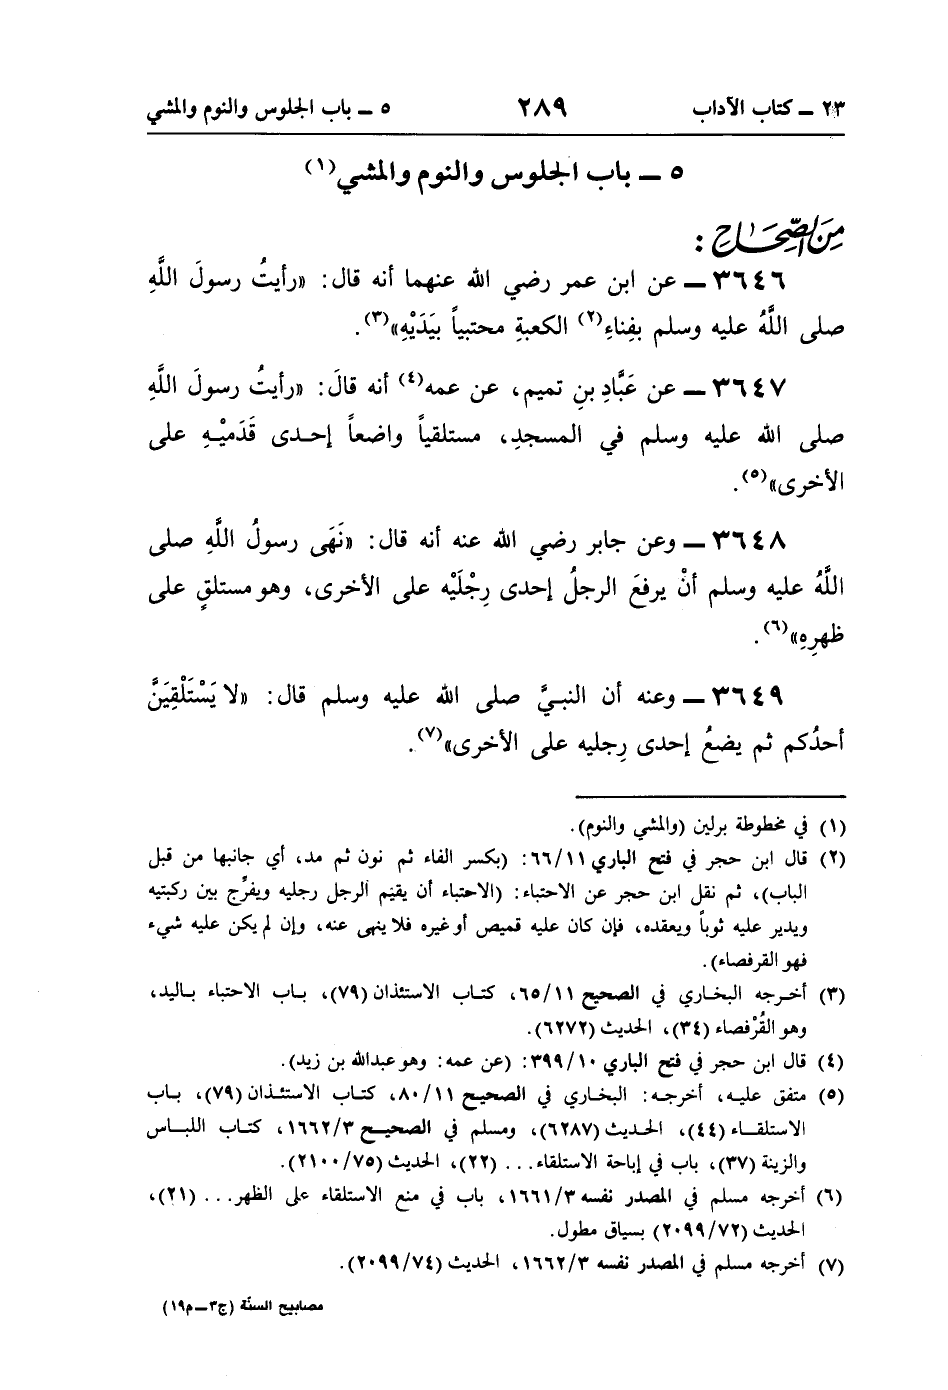 ٢٣ ـ كتاب الآداب ٢٨٩ ٥ ـ باب الجلوس والنوم والمشي
٥ ـ باب الجلوس والنوم والمشي(١)
مِنَ الصِّحَاحِ :
٣٦٤٦ ـ عن ابن عمر رضي الله عنهما أنه قال: «رأيتُ رسولَ اللَّهِ
صلى اللَّهُ عليه وسلم بفِناءِ(٢) الكعبةِ محتبياً بيَدَيْهِ»(٣).
٣٦٤٧ ـ عن عَبَّادِ بنِ تميم، عن عمه(٤) أنه قالَ: «رأيتُ رسولَ اللَّهِ
صلى الله عليه وسلم في المسجدِ، مستلقياً واضعاً إحدى قَدَميْهِ على
الأخرى»(٥).
٣٦٤٨ ـ وعن جابر رضي الله عنه أنه قال: «نَهَى رسولُ اللَّهِ صلى
اللَّهُ عليه وسلم أنْ يرفعَ الرجلُ إحدى رِجْلَيْه على الأخرى، وهو مستلقٍ على
ظهرِهِ»(٦).
٣٦٤٩ ـ وعنه أن النبيَّ صلى الله عليه وسلم قال: «لا يَسْتَلْقِيَنَّ
أحدُكم ثم يضعُ إحدى رِجليه على الأخرى»(٧).
(١) في مخطوطة برلين (والمشي والنوم).
(٢) قال ابن حجر في فتح الباري ٦٦/١١: (بكسر الفاء ثم نون ثم مد، أي جانبها من قبل
الباب)، ثم نقل ابن حجر عن الاحتباء: (الاحتباء أن يقيم الرجل رجليه ويفرِّج بين ركبتيه
ويدير عليه ثوباً ويعقده، فإن كان عليه قميص أو غيره فلا ينهى عنه، وإن لم يكن عليه شيء
فهو القرفصاء).
(٣) أخرجه البخاري في الصحيح ٦٥/١١، كتاب الاستئذان (٧٩)، باب الاحتباء باليد،
وهو القُرْفصاء (٣٤)، الحديث (٦٢٧٢).
(٤) قال ابن حجر في فتح الباري ٣٩٩/١٠: (عن عمه: وهو عبدالله بن زيد).
(٥) متفق عليه، أخرجه: البخاري في الصحيح ٨٠/١١، كتاب الاستئذان (٧٩)، باب
الاستلقاء (٤٤)، الحديث (٦٢٨٧)، ومسلم في الصحيح ١٦٦٢/٣، كتاب اللباس
والزينة (٣٧)، باب في إباحة الاستلقاء... (٢٢)، الحديث (٢١٠٠/٧٥).
(٦) أخرجه مسلم في المصدر نفسه ١٦٦١/٣، باب في منع الاستلقاء على الظهر... (٢١)،
الحديث (٢٠٩٩/٧٢) بسياق مطول.
(٧) أخرجه مسلم في المصدر نفسه ١٦٦٢/٣، الحديث (٢٠٩٩/٧٤).
مصابيح السنّة (ج٣ـ م١٩)